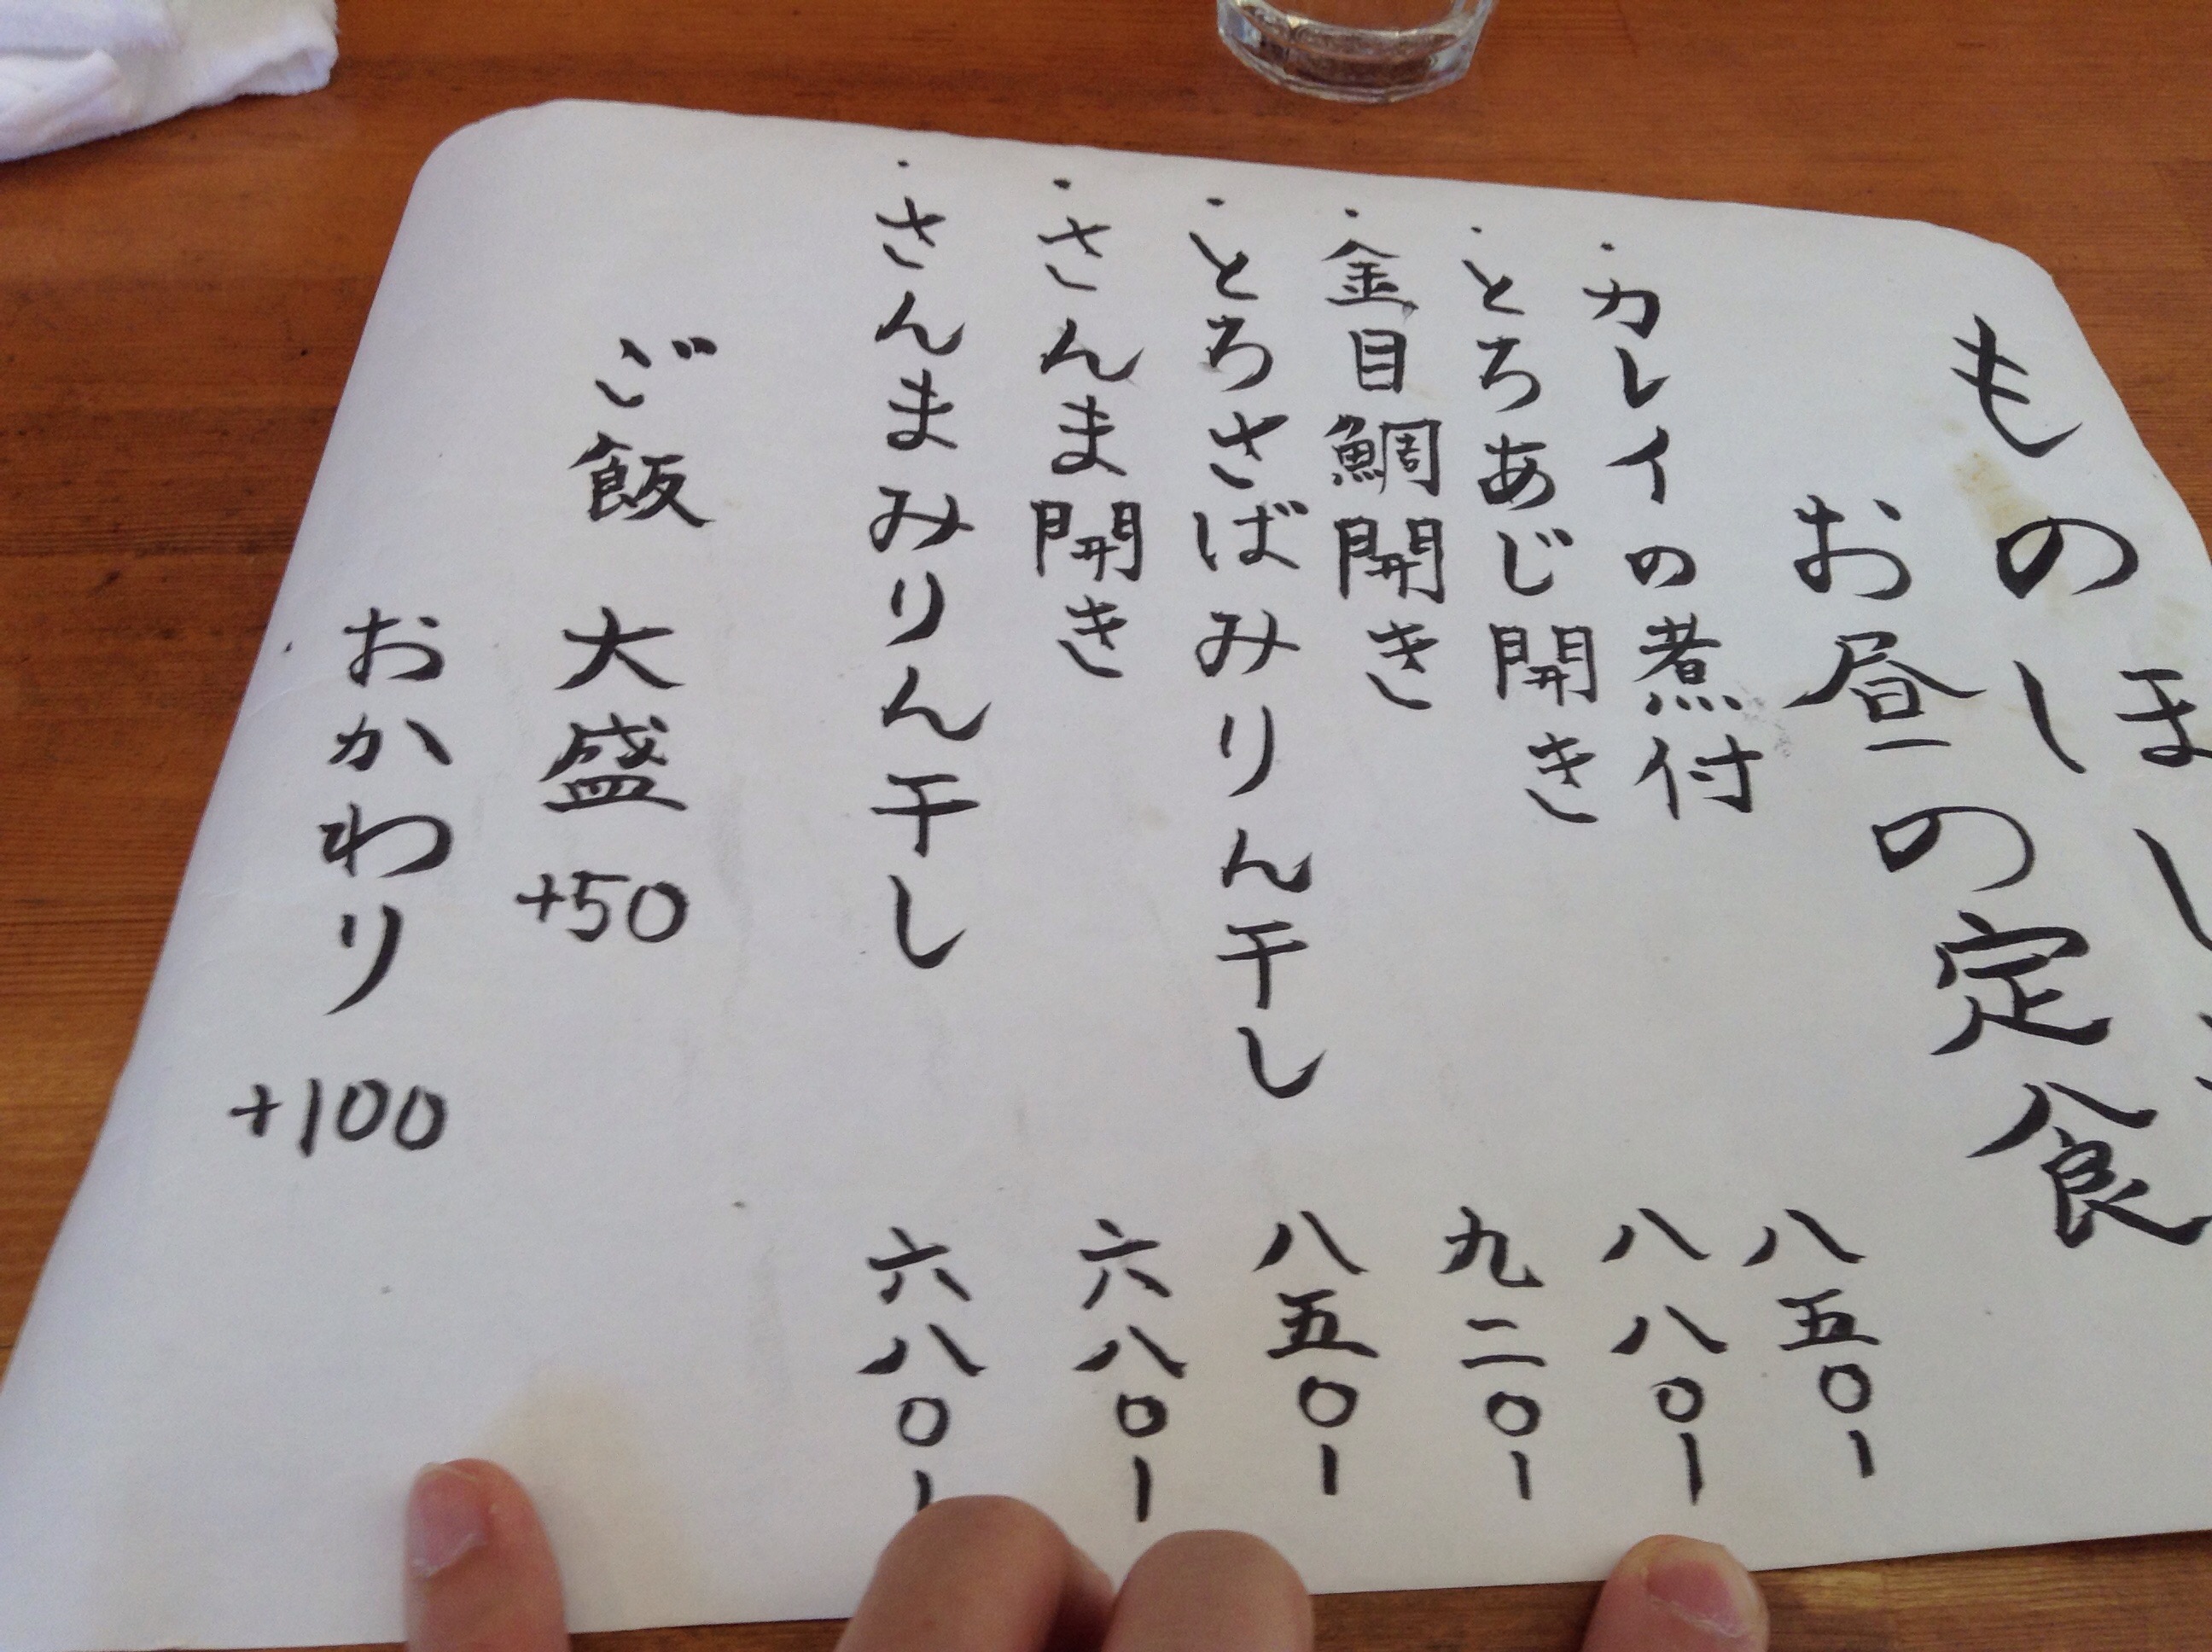 ものし
お昼の定食
・カレイの煮付 八五〇ー
・とろあじ開き 八八〇ー
・金目鯛開き 九二〇ー
・とろさばみりん干し 八五〇ー
・さんま開き 六八〇ー
・さんまみりん干し 六八〇ー
ご飯 大盛 +50
おかわり +100